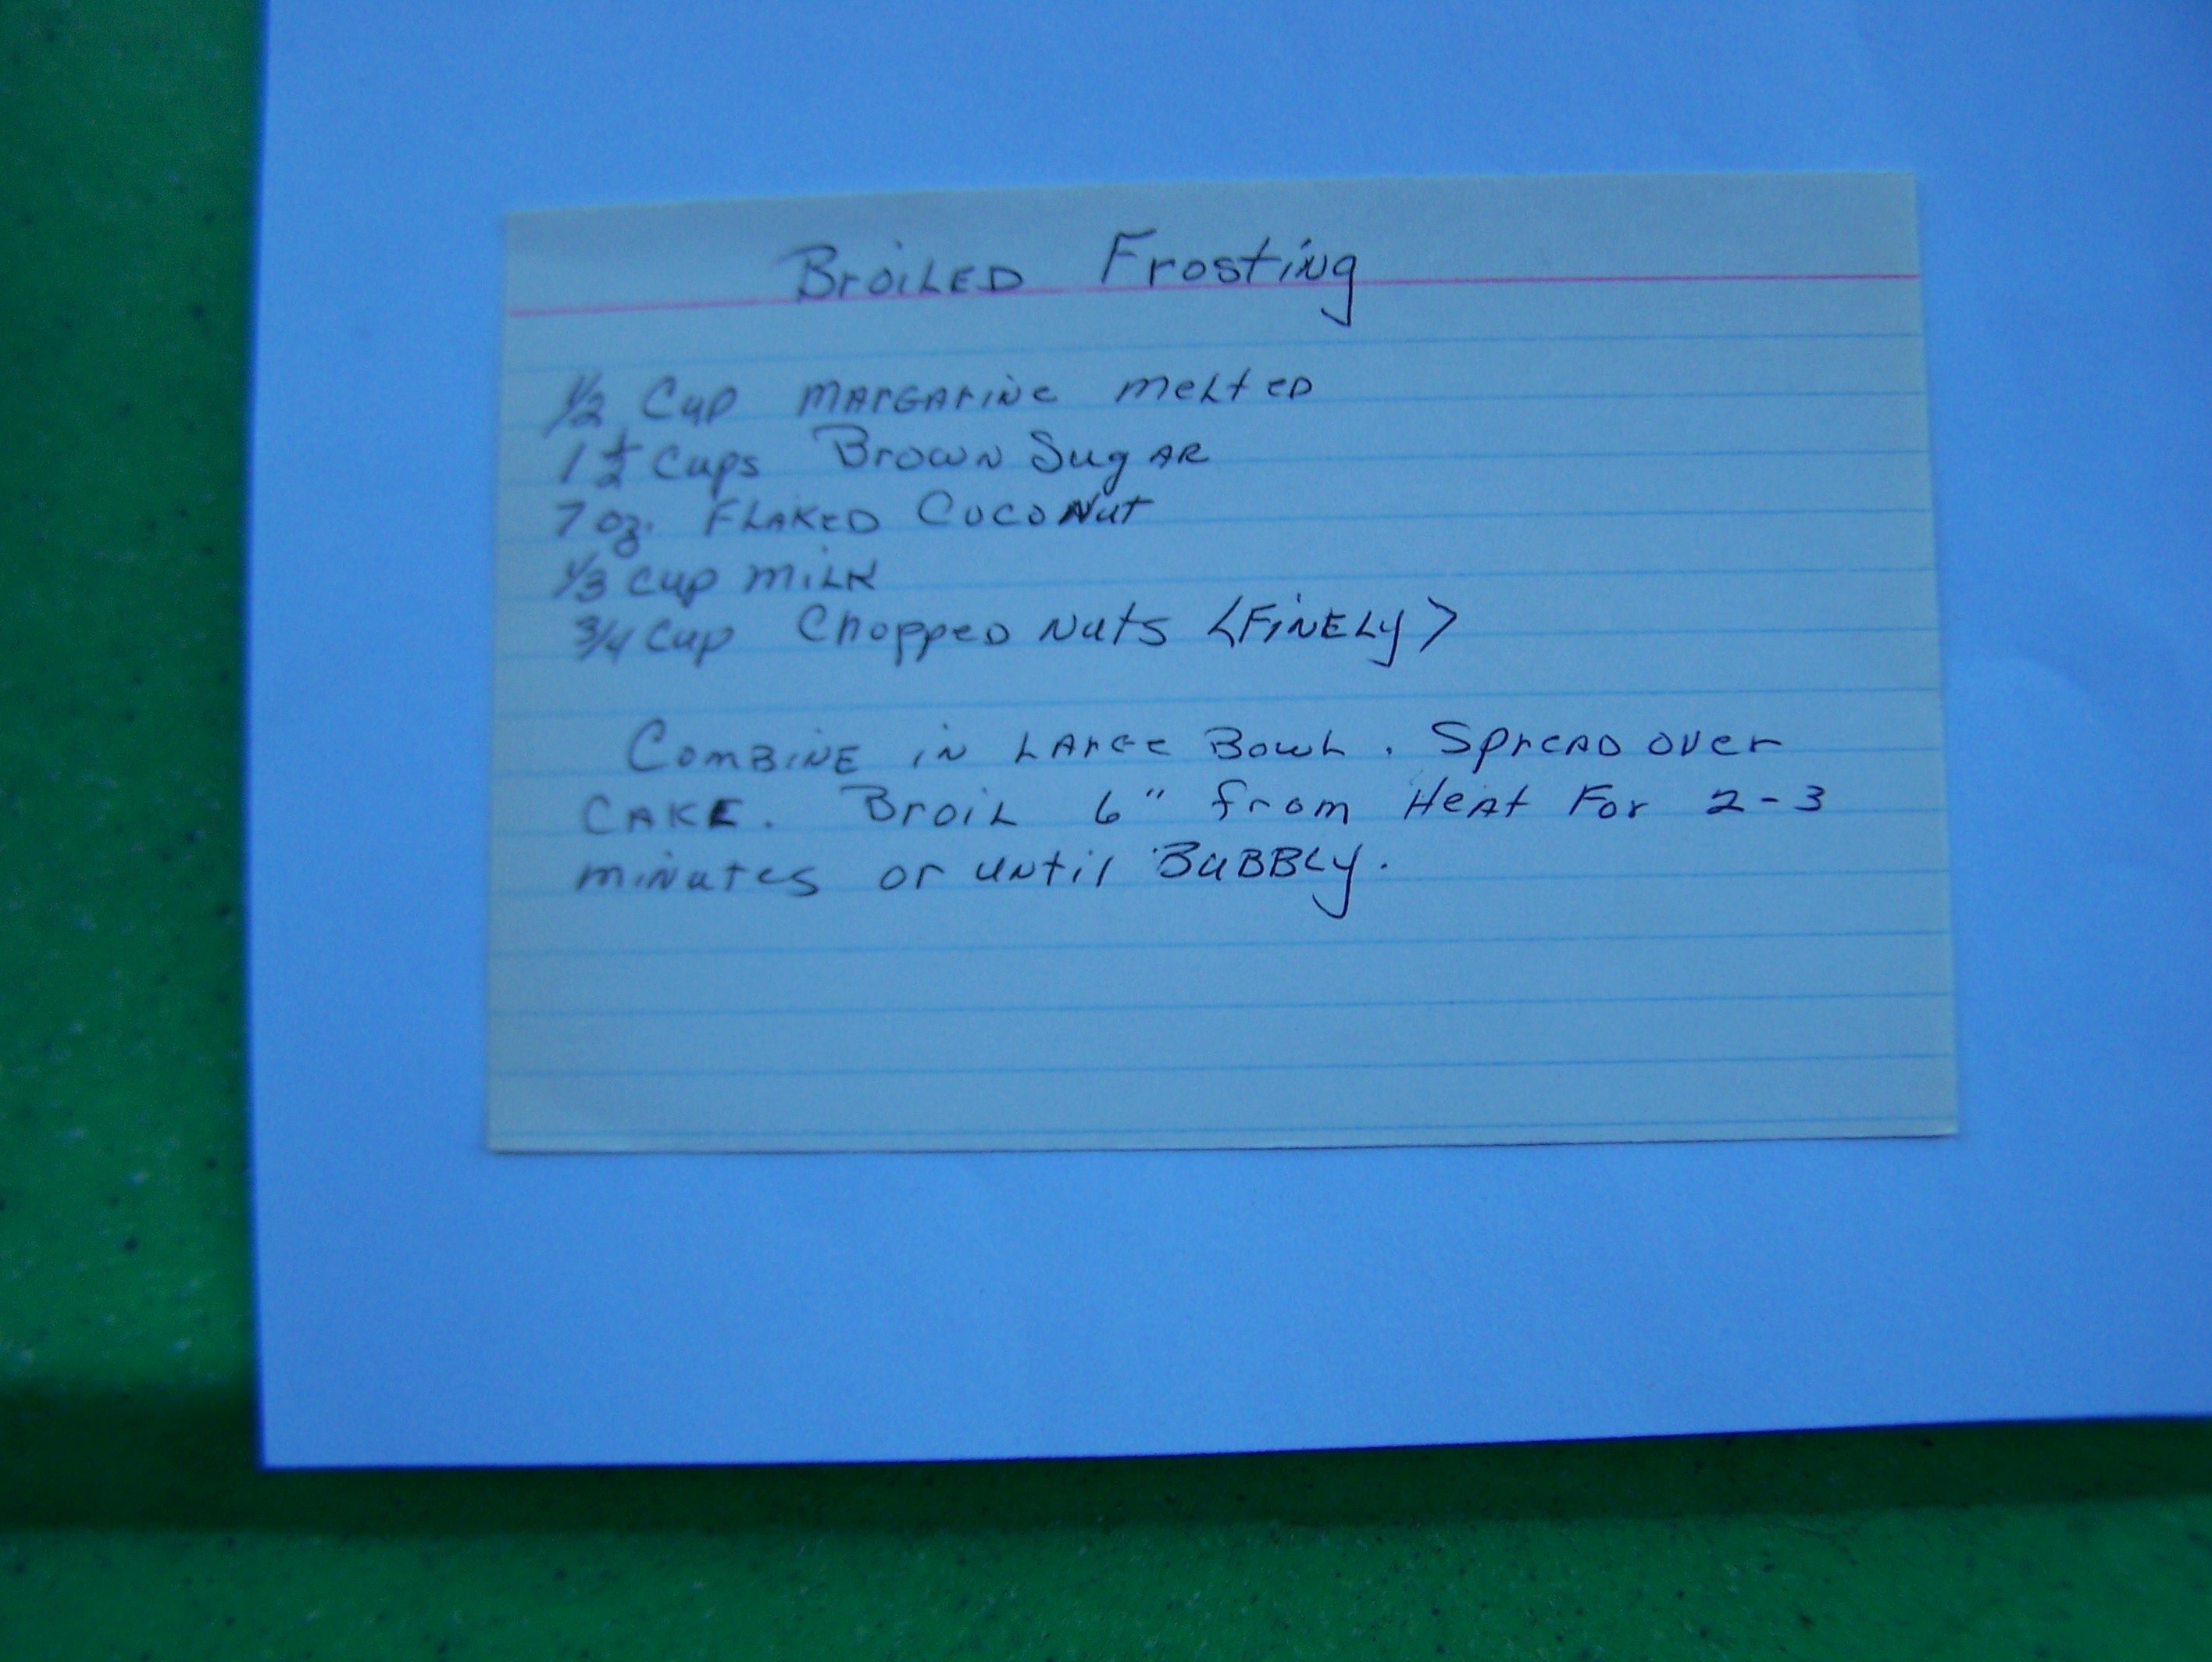 Broiled Frosting
1/2 Cup Margarine melted
1 1/2 Cups Brown Sugar
7 oz. Flaked Coconut
1/3 Cup Milk
3/4 Cup Chopped Nuts <Finely>
Combine in Large Bowl. Spread over
Cake. Broil 6" from Heat For 2-3
minutes or until Bubbly.